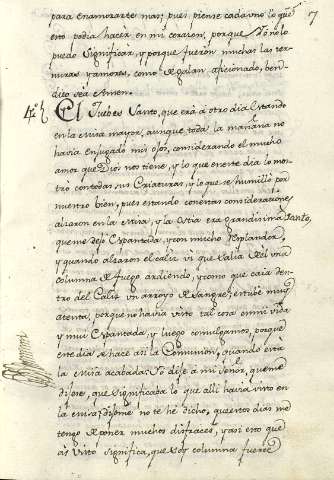 7
para enamorarte mas; pues piense cada uno lo que
esto podia hacer en mi corazon, porque Yo no lo
puedo significar, y porque fueron muchas las ter-
nuras y amores, como de galan aficionado, ben-
dito sea Amen.
4º El Juebes Santo, que era â otro dia estando
en la misa mayor, aunque toda la mañana no
havia enjugado mis ojos, considerando el mucho
amor que Dios nos tiene, y lo que en este dia lo mos-
trò con todas sus Criaturas, y lo que se humillò por
nuestro bien, pues estando con estas consideraciones
alzaron en la misa, y la ostia era grandisima tanto,
que me dejo espantada, y con mucho resplandor,
y quando alzaron el caliz vi que salia del una
columna de fuego ardiendo, y como que caia den-
tro del Caliz un arroyo de sangre; estube muy
atenta, porque no havia visto tal cosa en mi vida
y muy espantada, y luego comulgamos, porque
este dia se hace asi la Comunion, quando està
la misa acabada: Yo dije a mi Señor, que me
dijese, que significaba lo que alli havia visto en
la misa; dijome no te he dicho, que estos dias me
tengo de poner muchos disfraces, y asi esto que
as visto significa, que Yo soy columna fuerte